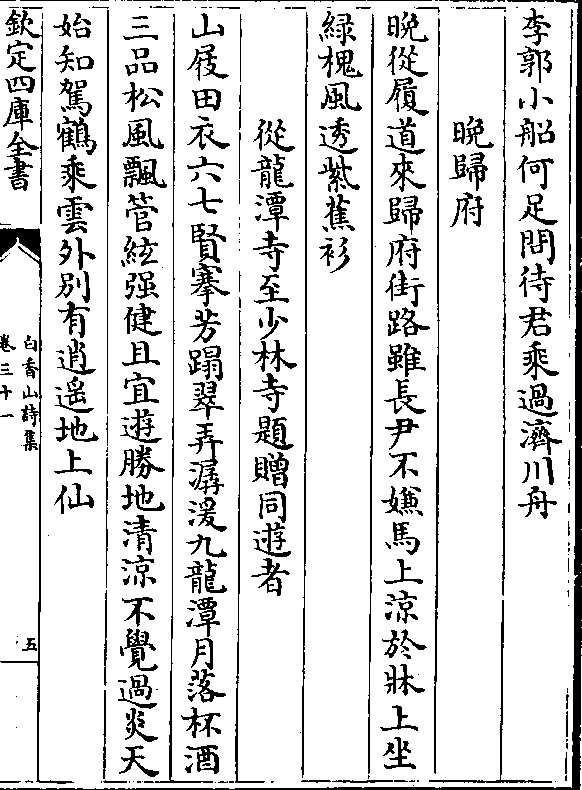 李郭小船何足問待君乘過濟川舟
晩歸府
晚從履道來歸府街路雖長尹不嫌馬上涼於牀上坐
綠槐風透紫蕉衫
從龍潭寺至少林寺題贈同遊者
山屐田衣六七賢搴芳蹋翠弄潺湲九龍潭月落杯酒
三品松風飄管絃强健且宜遊勝地清涼不覺過炎天
始知駕鶴乘雲外別有逍遥地上仙
欽定四庫全書
白香山詩集
卷三十一
五